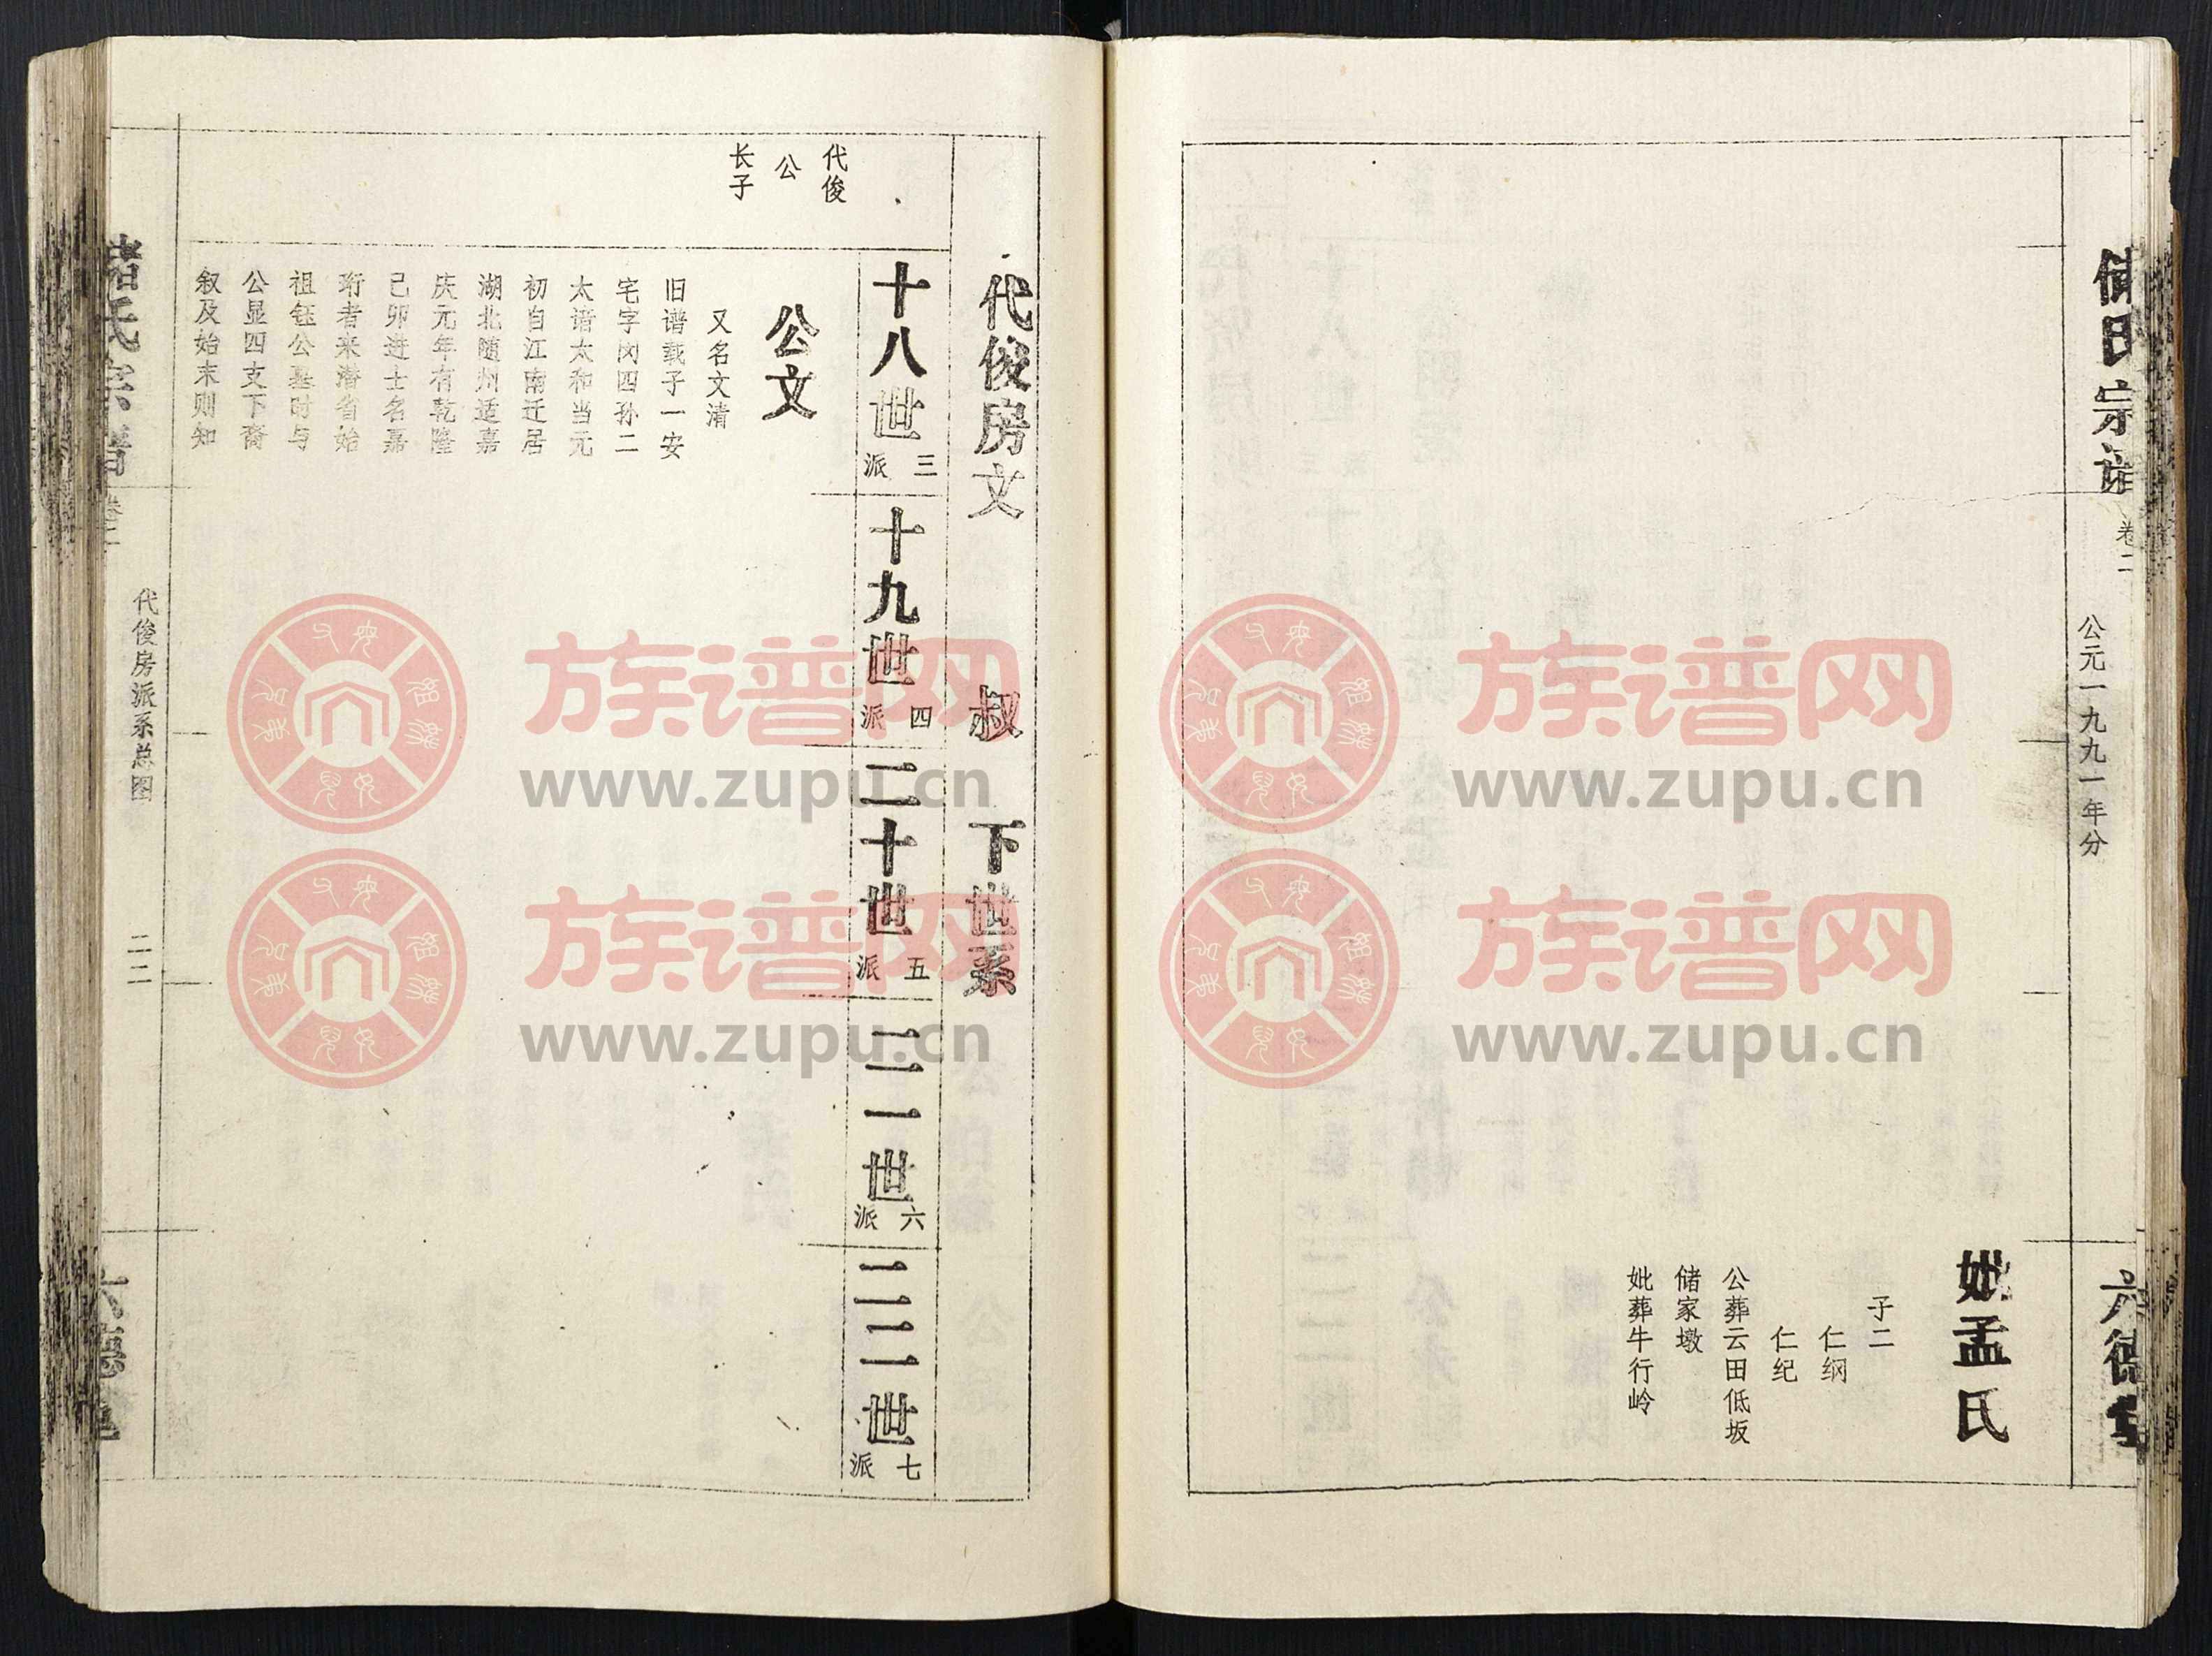 储氏宗谱
卷二
公元一九九一年分
六德堂
妣孟氏
子二
仁纲
仁纪
公葬云田低坂
储家墩
妣葬牛行岭
代俊房文 叔 下世系
十八世
三派
十九世
四派
二十世
五派
二十一世
六派
二十二世
七派
代俊
公
长子
公文
又名文清
旧谱载子一安
宅字闵四孙二
太谙太和当元
初自江南迁居
湖北随州适嘉
庆元年有乾隆
己卯进士名嘉
珩者来潜省始
祖钰公墓时与
公显四支下裔
叙及始末则知
储氏宗谱
卷二
代俊房派系总图
二二
六德堂
族谱网
www.zupu.cn
族谱网
www.zupu.cn
族谱网
www.zupu.cn
族谱网
www.zupu.cn